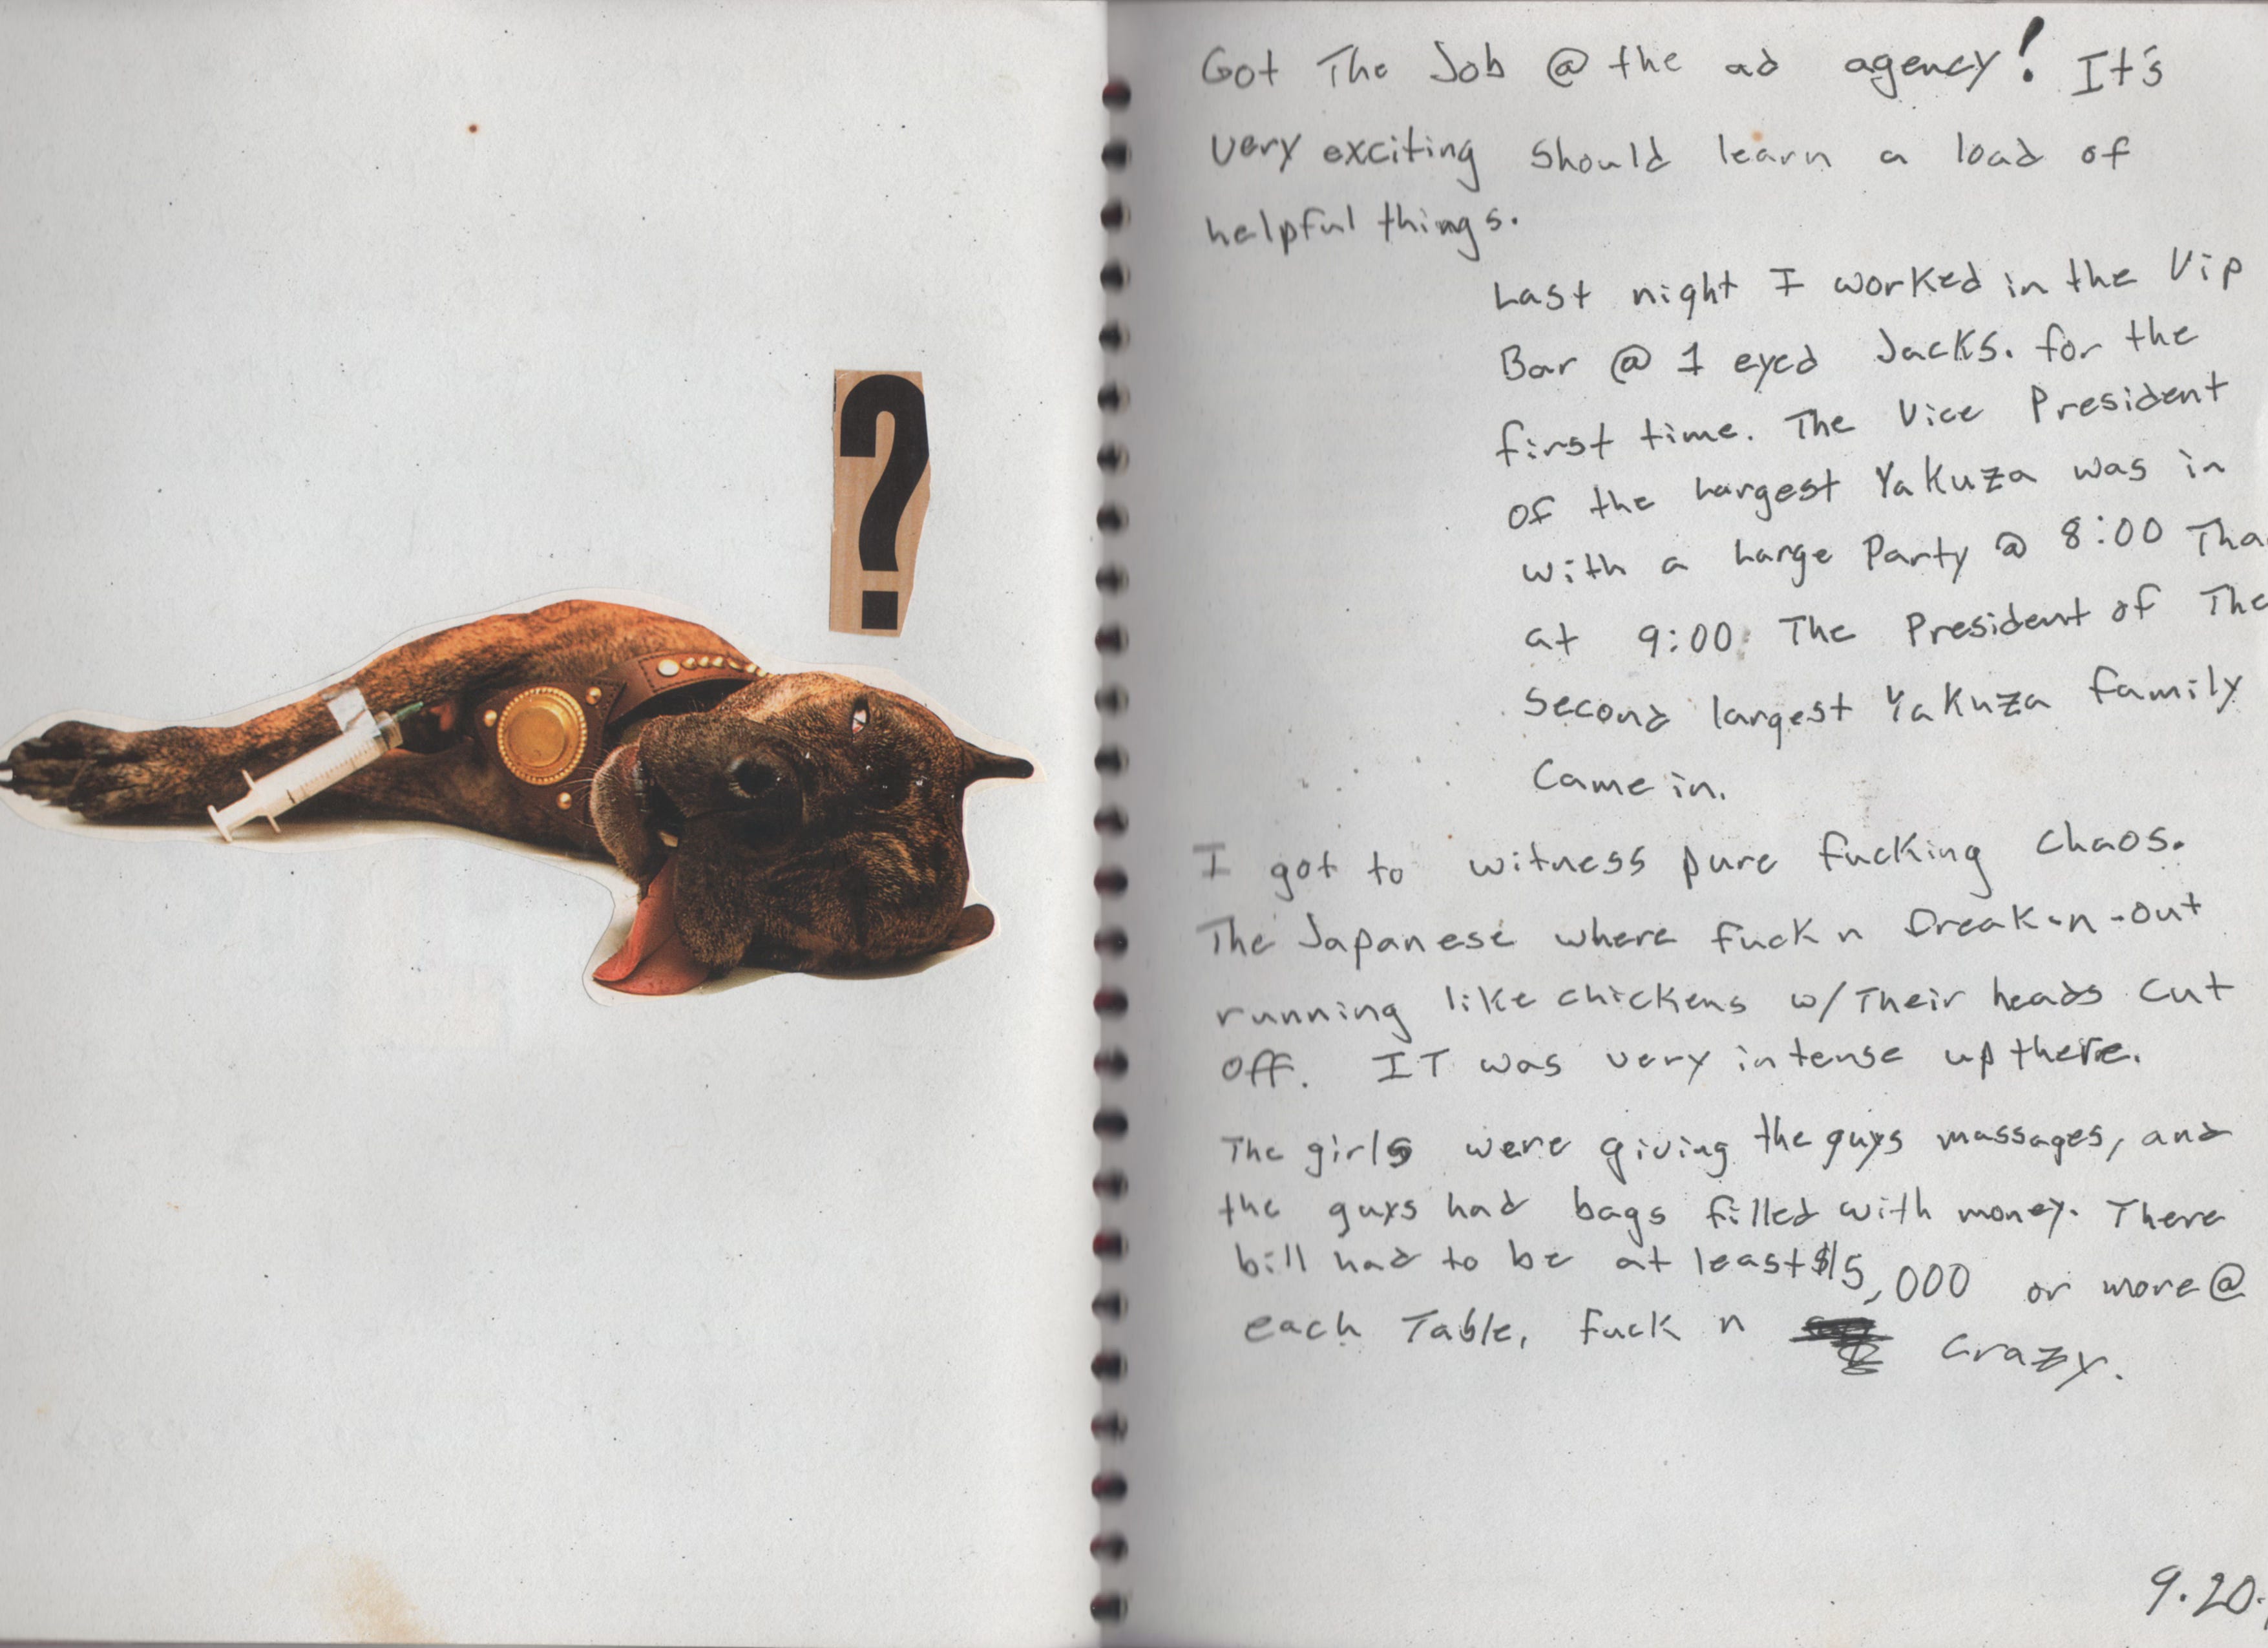 ?
Got The Job @ the ad agency! It's
very exciting should learn a load of
helpful things.
Last night I worked in the Vip
Bar @ 1 eyed Jacks. for the
first time. The Vice President
of the largest Yakuza was in
with a large Party @ 8:00 Tha
at 9:00 The President of The
Second largest Yakuza family
Came in.
I got to witness pure fucking chaos.
The Japanese where fuck n freak-n-out
running like chickens w/ Their heads cut
off. IT was very intense up there.
The girls were giving the guys massages, and
the guys had bags filled with money. There
bill had to be at least $15,000 or more @
each Table, fuck n crazy.
9.20.